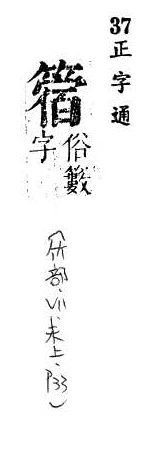 37 正字通
俗籔
字
(竹部·VII·未上·P33)